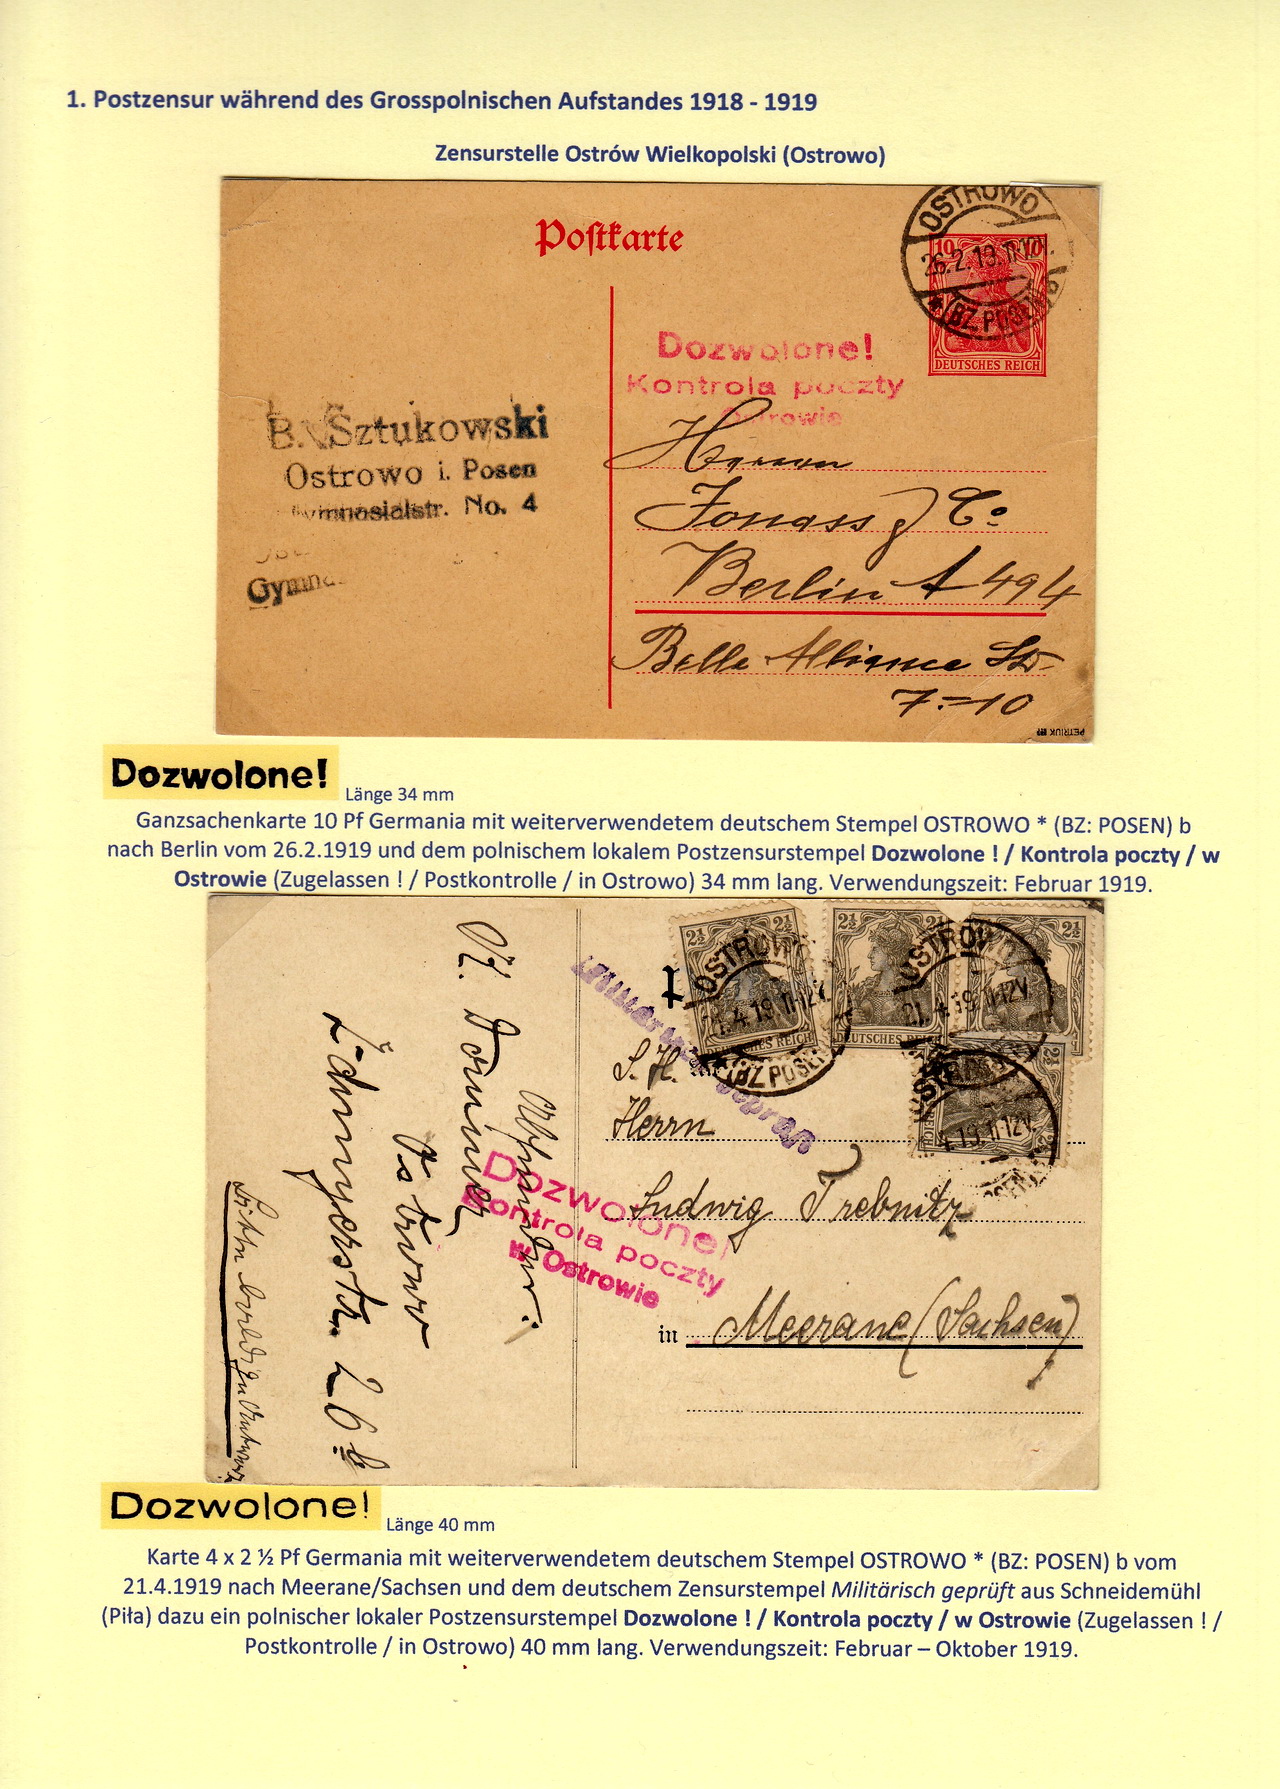 1. Postzensur während des Grosspolnischen Aufstandes 1918 - 1919
Zensurstelle Ostrów Wielkopolski (Ostrowo)
Postkarte
OSTROWO
26.2.19.11-12V.
* (BZ. POSEN) b
10 10
DEUTSCHES REICH
Dozwolone!
Kontrola poczty
Ostrowie
B. Sztukowski
Ostrowo i. Posen
Gymnasialstr. No. 4
Gymna
Herren
Jonass & Co
Berlin A 494
Belle Alliance Str
7-10
PETRIUK
Dozwolone!
Länge 34 mm
Ganzsachenkarte 10 Pf Germania mit weiterverwendetem deutschem Stempel OSTROWO * (BZ: POSEN) b
nach Berlin vom 26.2.1919 und dem polnischem lokalem Postzensurstempel Dozwolone ! / Kontrola poczty / w
Ostrowie (Zugelassen ! / Postkontrolle / in Ostrowo) 34 mm lang. Verwendungszeit: Februar 1919.
2½ 2½
OSTROWO
21.4.19.11-12V.
(BZ POSEN)
DEUTSCHES REICH
2½ 2½
OSTROWO
21.4.19 11-12V
DEUTSCHES REICH
2½
OSTROWO
4.19.11-12V.
POSEN
Militärisch geprüft
S. H.
Herrn
Ludwig Trebnitz
in Meerane (Sachsen)
Dozwolone!
Kontrola poczty
w Ostrowie
Ostrowo
26 b
Dozwolone!
Länge 40 mm
Karte 4 x 2 ½ Pf Germania mit weiterverwendetem deutschem Stempel OSTROWO * (BZ: POSEN) b vom
21.4.1919 nach Meerane/Sachsen und dem deutschem Zensurstempel Militärisch geprüft aus Schneidemühl
(Piła) dazu ein polnischer lokaler Postzensurstempel Dozwolone ! / Kontrola poczty / w Ostrowie (Zugelassen ! /
Postkontrolle / in Ostrowo) 40 mm lang. Verwendungszeit: Februar – Oktober 1919.